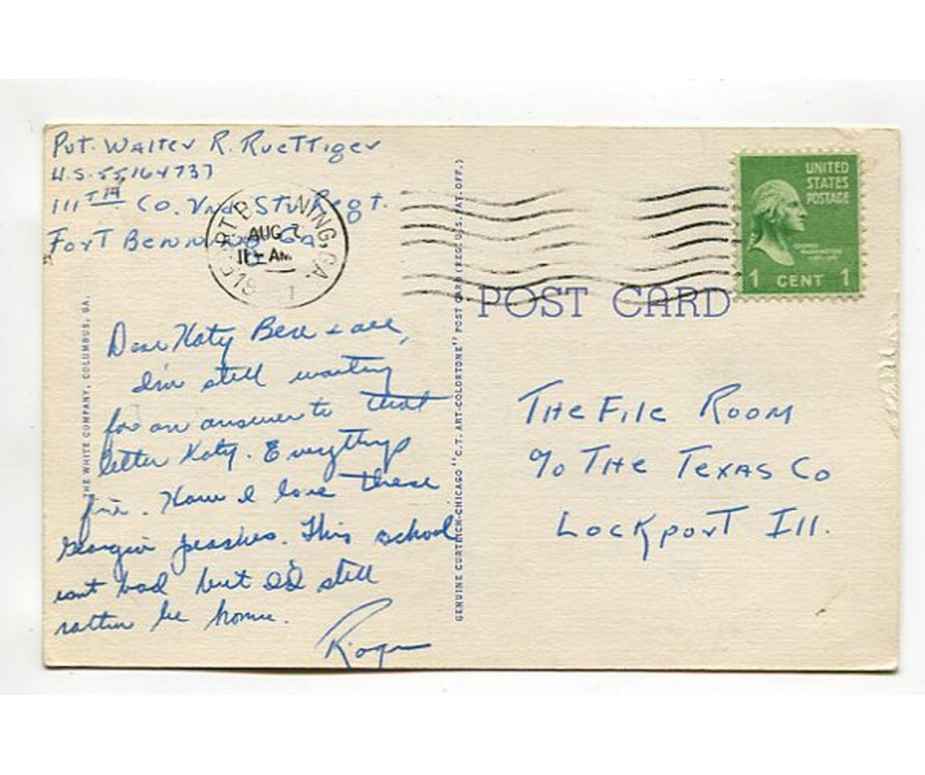 Pvt. Walter R. Ruettiger
U.S. 55164737
111TH Co. Stu Regt.
Fort Benning Ga.
AUG 7
11 - AM
1951
UNITED
STATES
POSTAGE
1 CENT 1
POST CARD
Dear Katy Bere + all,
I'm still waiting
for an answer to that
letter Katy. Everythings
fine. How I love these
Georgia peaches. This school
isnt bad but I'd still
rather be home.
Roger
THE FILE ROOM
c/o THE TEXAS CO
LOCKPORT Ill.
THE WHITE COMPANY, COLUMBUS, GA.
GENUINE CURTEICH-CHICAGO "C.T. ART-COLORTONE" POST CARD (REG. U.S. PAT. OFF.)